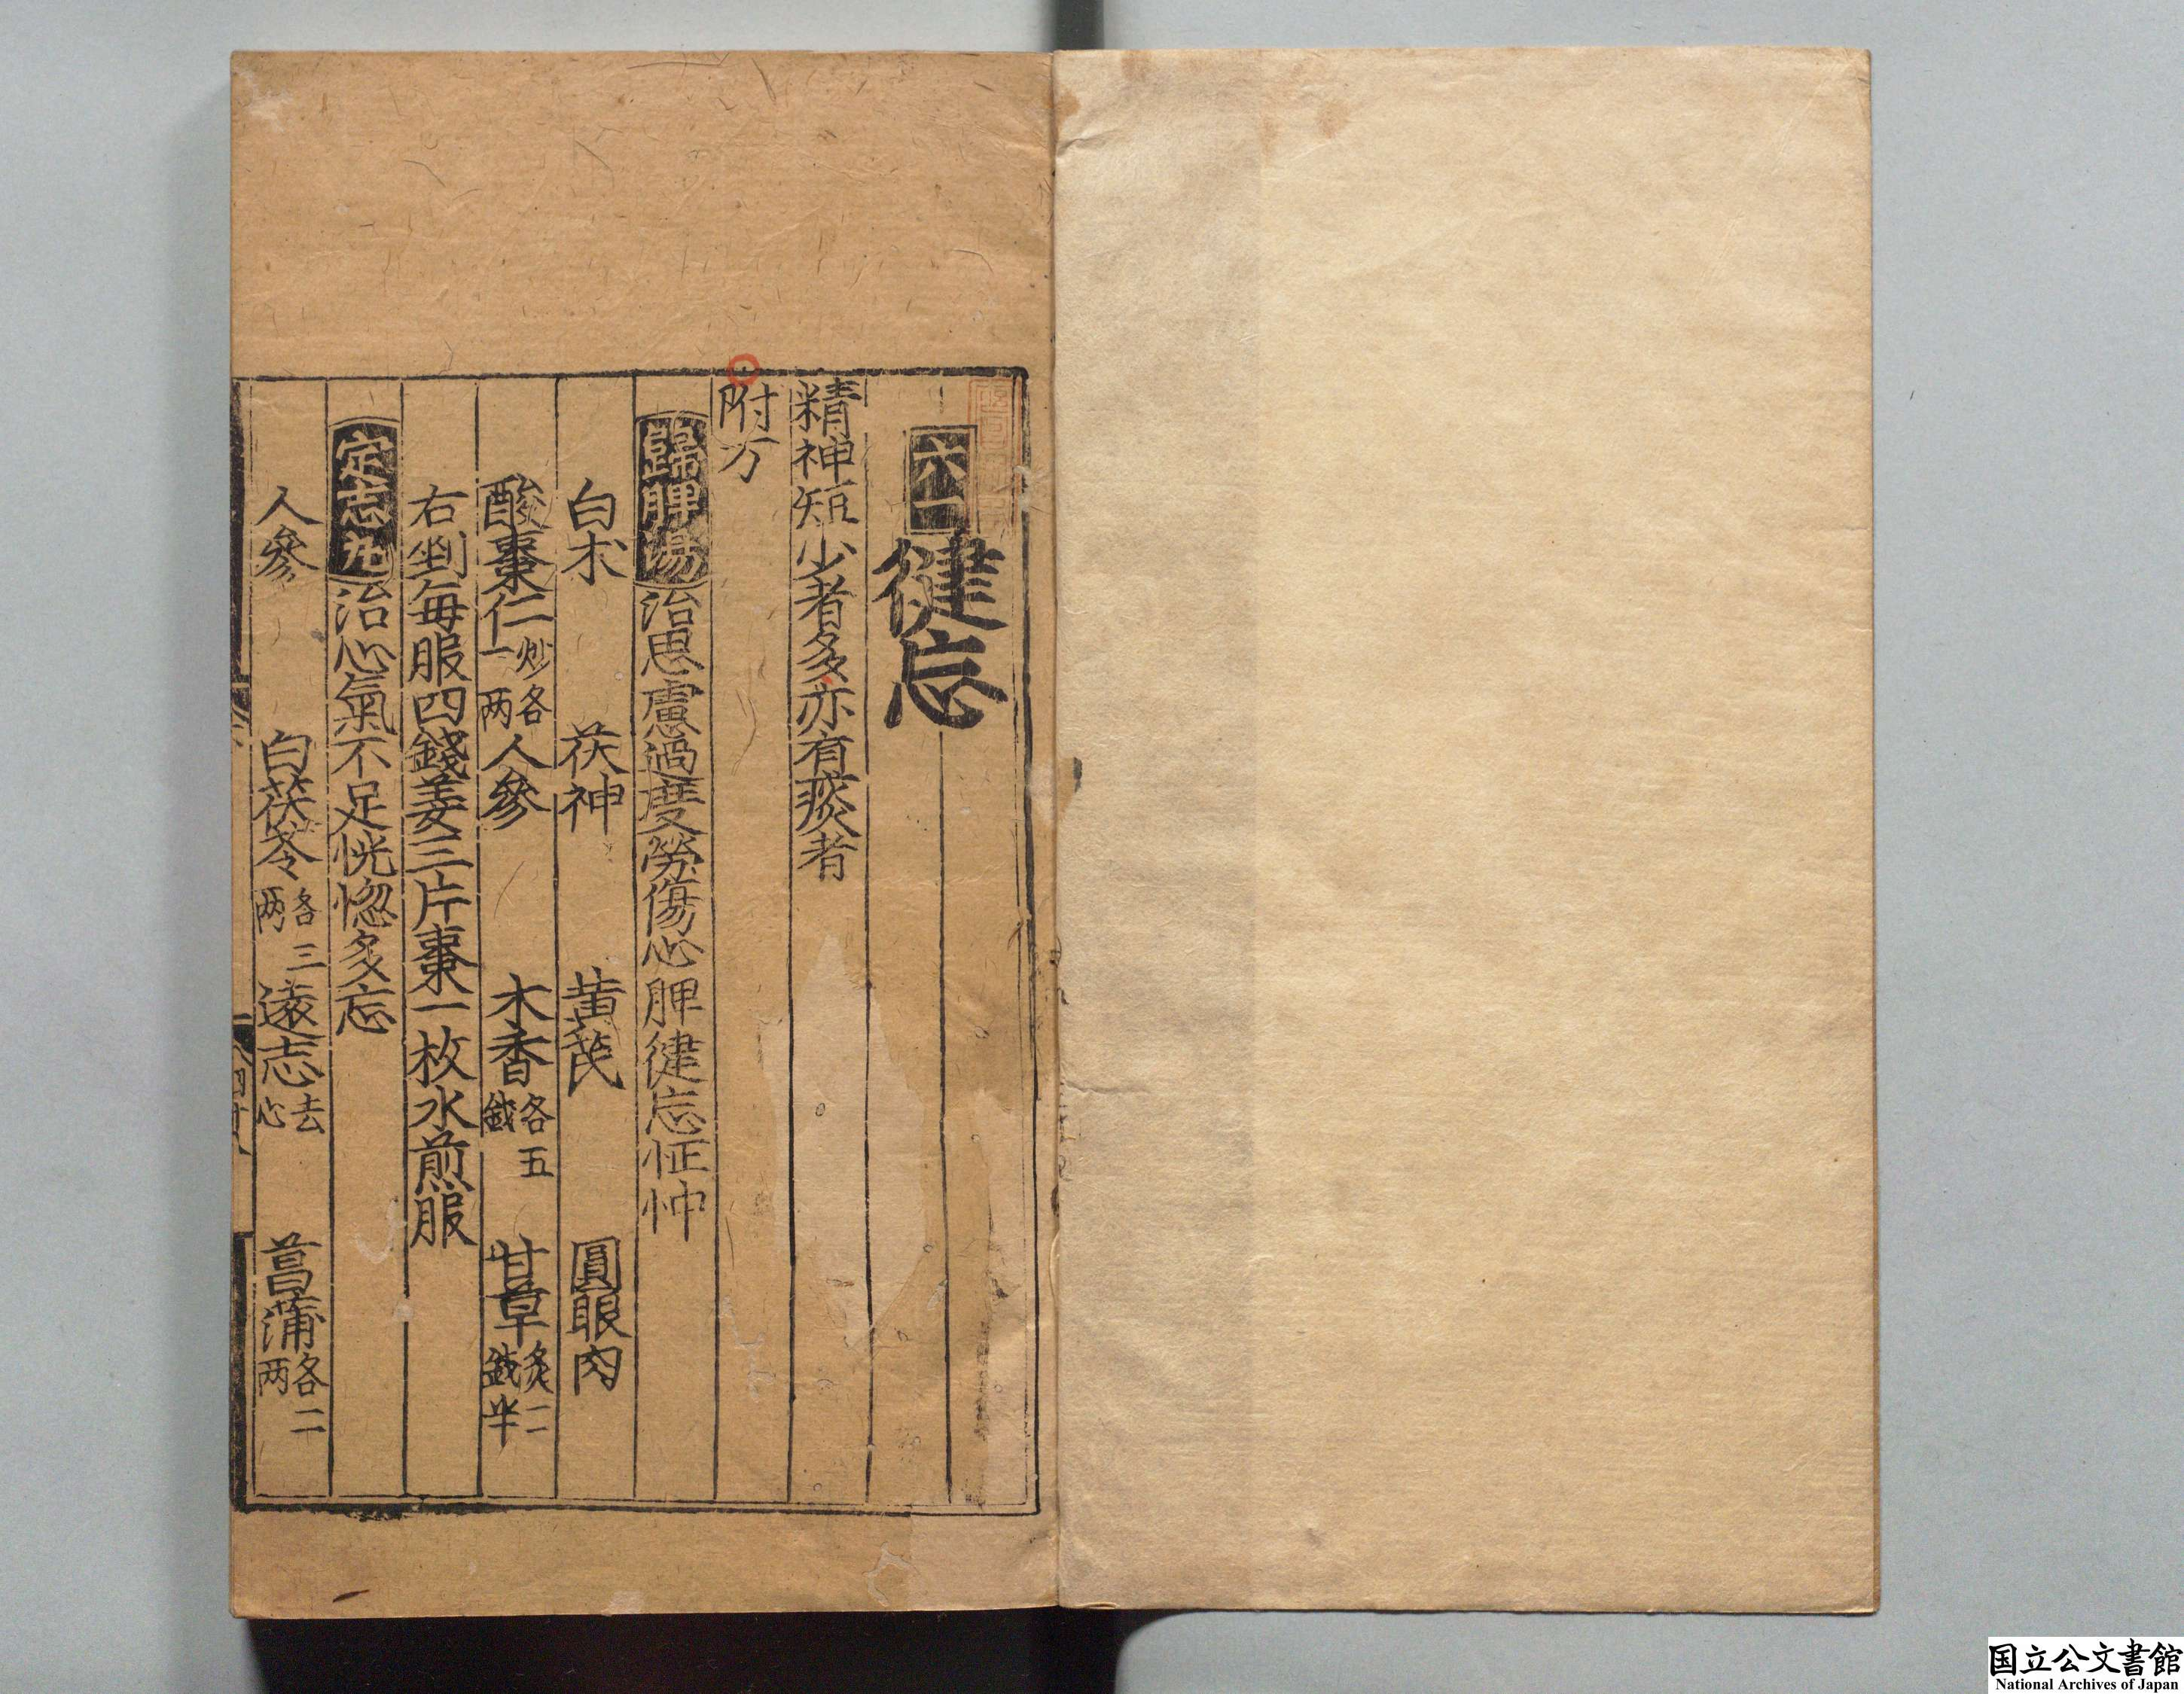 六一健忘
精神短少者多亦有痰者
附方
歸脾湯治思慮過度勞傷心脾健忘怔忡
白朮 茯神 黃芪 圓眼肉
酸棗仁炒各一两 人參 木香各五錢 甘草炙二錢半
右剉每服四錢姜三片棗一枚水煎服
定志丸治心氣不足恍惚多忘
人參 白茯苓各三两 遠志去心 菖蒲各二两
国立公文書館
National Archives of Japan